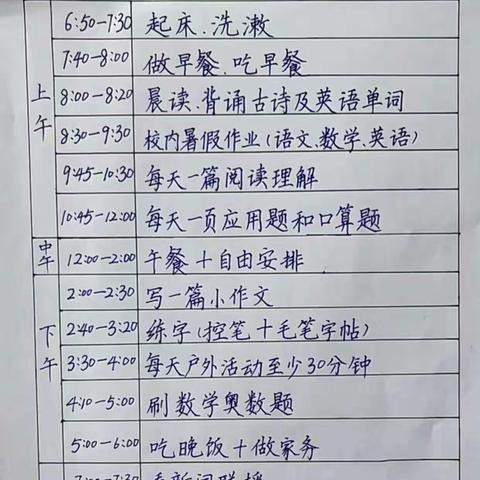 6:50-7:30 起床、洗漱
7:40-8:00 做早餐、吃早餐
上午 8:00-8:20 晨读、背诵古诗及英语单词
8:30-9:30 校内暑假作业(语文、数学、英语)
9:45-10:30 每天一篇阅读理解
10:45-12:00 每天一页应用题和口算题
中午 12:00-2:00 午餐+自由安排
2:00-2:30 写一篇小作文
下午 2:40-3:20 练字(控笔+毛笔字帖)
3:30-4:00 每天户外活动至少30分钟
4:10-5:00 刷数学奥数题
5:00-6:00 吃晚饭+做家务
7:00-7:30 看新闻联播